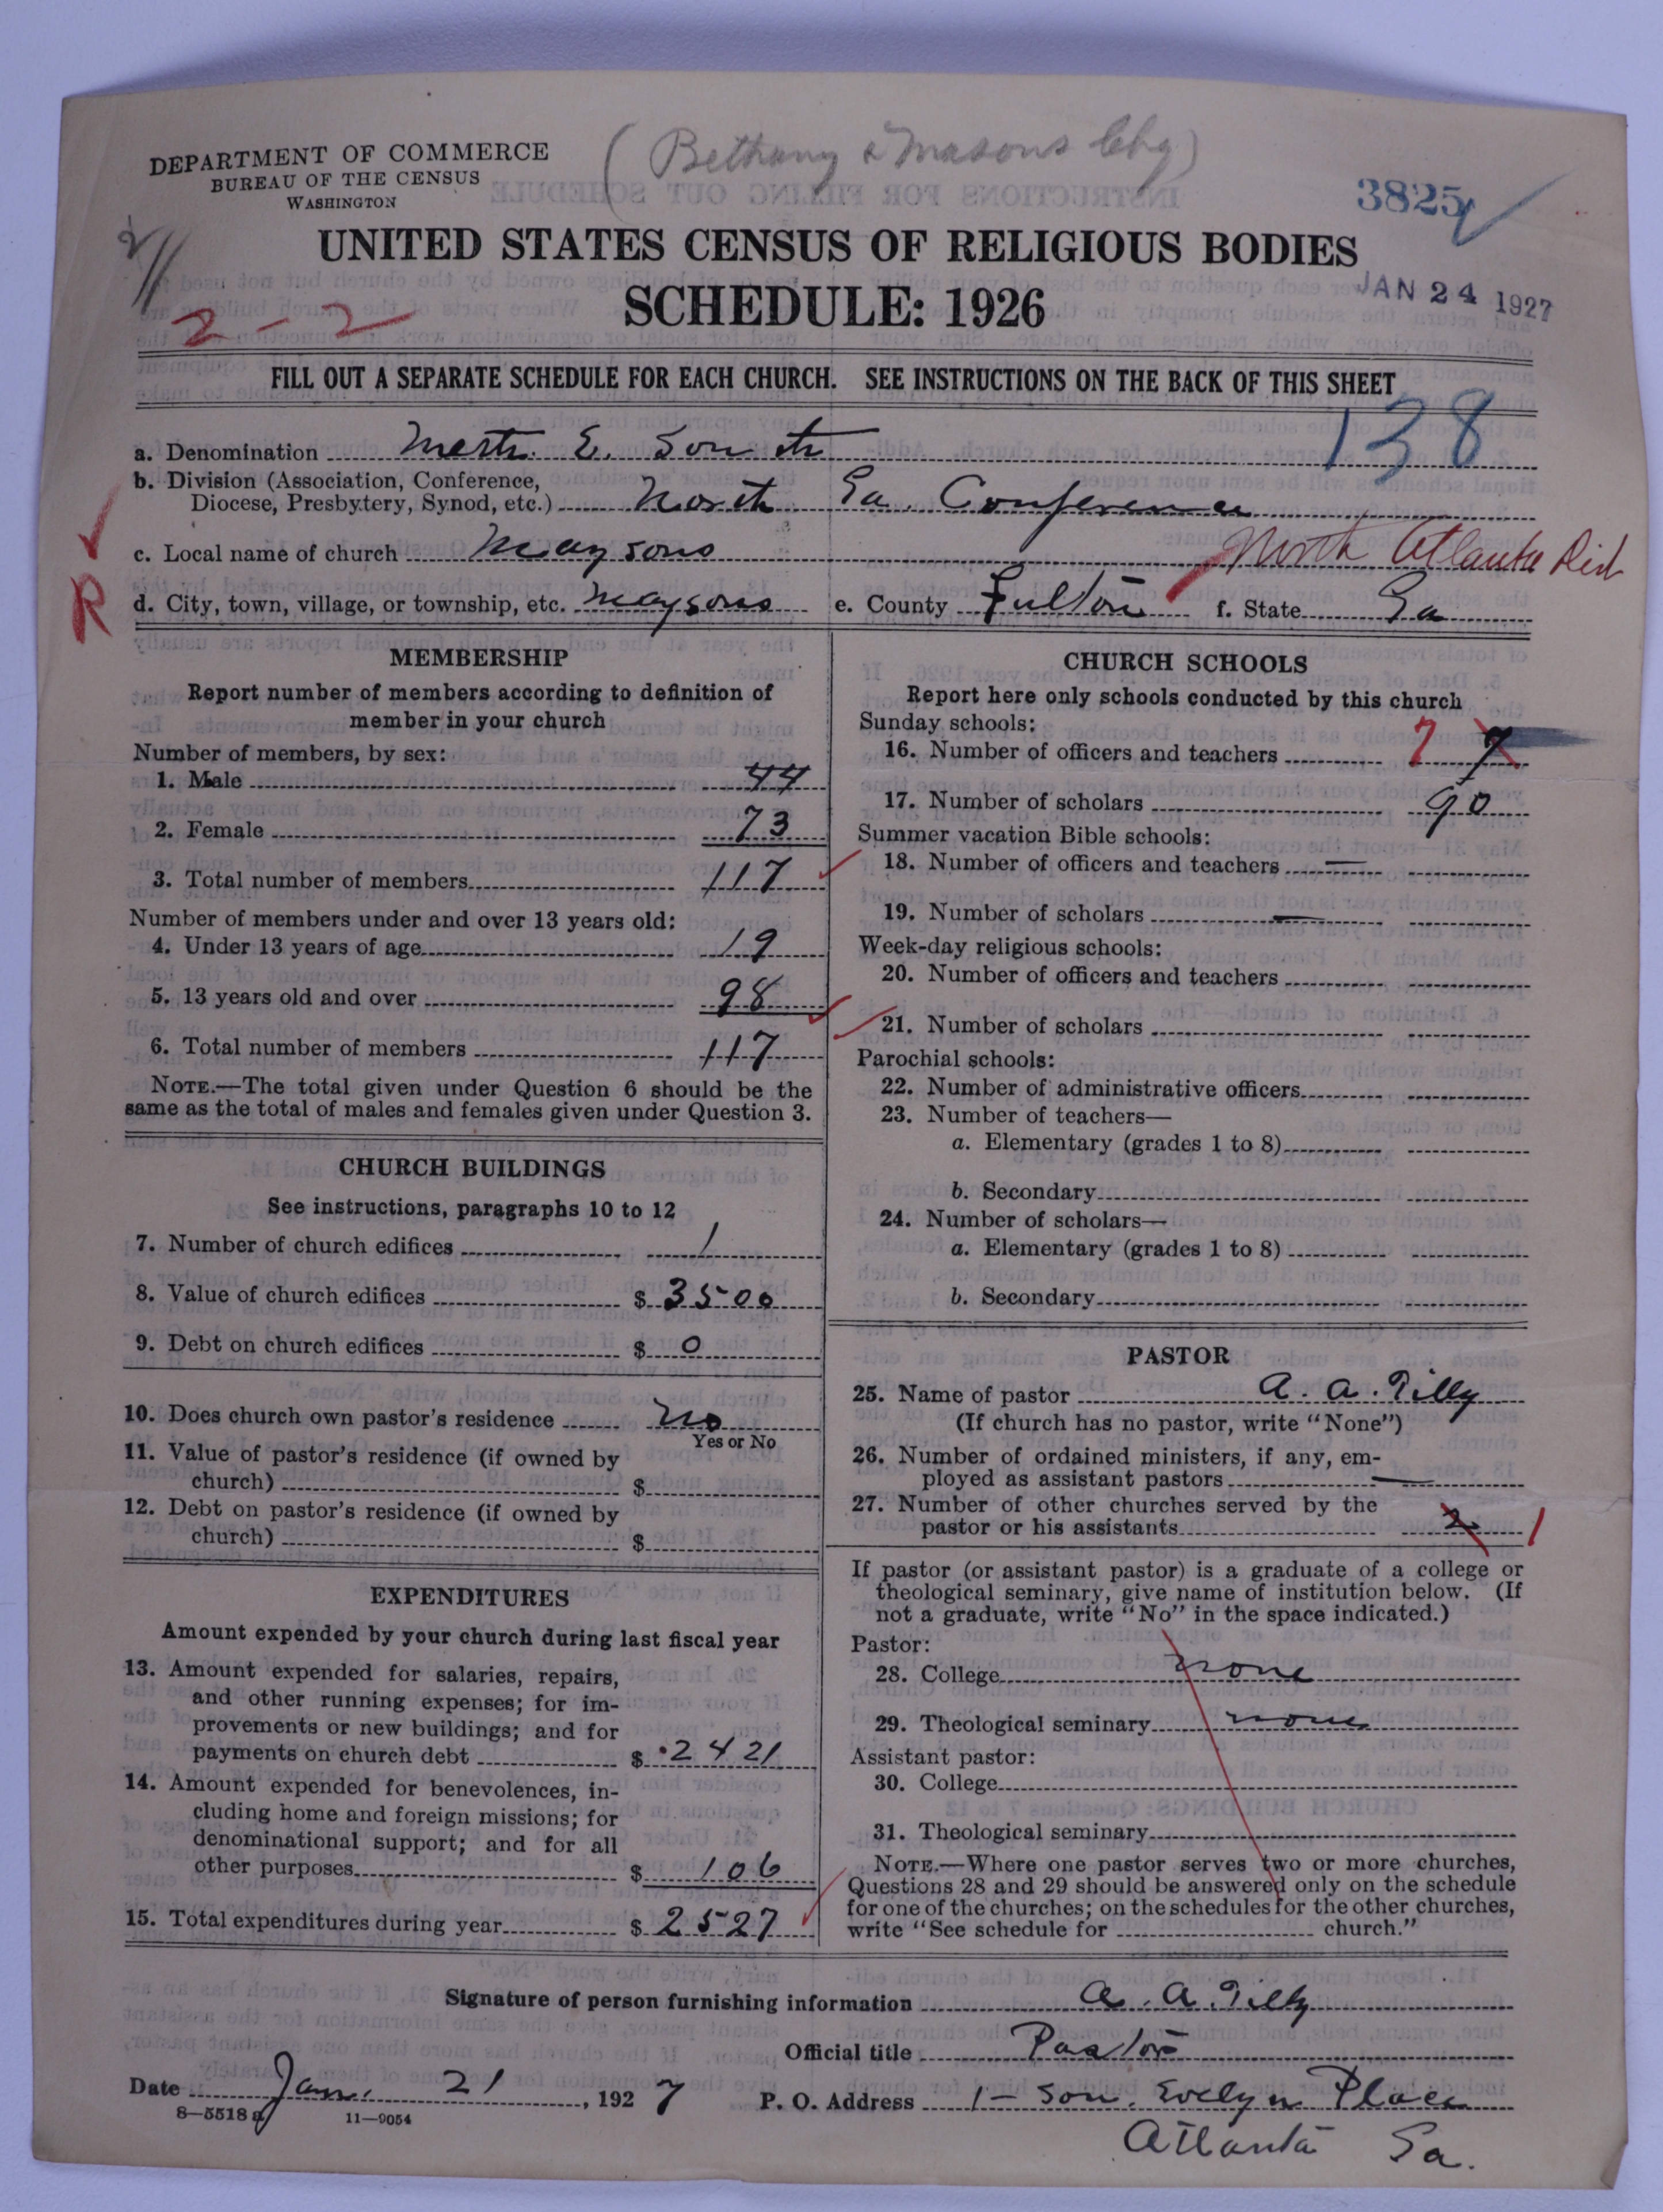 DEPARTMENT OF COMMERCE
BUREAU OF THE CENSUS
WASHINGTON
(Bethany & Masons Chg)
3825
UNITED STATES CENSUS OF RELIGIOUS BODIES
SCHEDULE: 1926
JAN 24 1927
2-2
FILL OUT A SEPARATE SCHEDULE FOR EACH CHURCH. SEE INSTRUCTIONS ON THE BACK OF THIS SHEET
138
a. Denomination Meth. E. South
b. Division (Association, Conference,
Diocese, Presbytery, Synod, etc.) North Ga. Conference
c. Local name of church Maysons North Atlanta Dist
R
d. City, town, village, or township, etc. Maysons e. County Fulton f. State Ga
MEMBERSHIP
Report number of members according to definition of
member in your church
Number of members, by sex:
1. Male 44
2. Female 73
3. Total number of members 117
Number of members under and over 13 years old:
4. Under 13 years of age 19
5. 13 years old and over 98
6. Total number of members 117
NOTE.—The total given under Question 6 should be the
same as the total of males and females given under Question 3.
CHURCH BUILDINGS
See instructions, paragraphs 10 to 12
7. Number of church edifices 1
8. Value of church edifices $ 3500
9. Debt on church edifices $ 0
10. Does church own pastor's residence No
Yes or No
11. Value of pastor's residence (if owned by
church) $
12. Debt on pastor's residence (if owned by
church) $
EXPENDITURES
Amount expended by your church during last fiscal year
13. Amount expended for salaries, repairs,
and other running expenses; for im-
provements or new buildings; and for
payments on church debt $ 2421
14. Amount expended for benevolences, in-
cluding home and foreign missions; for
denominational support; and for all
other purposes $ 106
15. Total expenditures during year $ 2527
CHURCH SCHOOLS
Report here only schools conducted by this church
Sunday schools:
16. Number of officers and teachers 7 7
17. Number of scholars 90
Summer vacation Bible schools:
18. Number of officers and teachers —
19. Number of scholars —
Week-day religious schools:
20. Number of officers and teachers
21. Number of scholars
Parochial schools:
22. Number of administrative officers
23. Number of teachers—
a. Elementary (grades 1 to 8)
b. Secondary
24. Number of scholars—
a. Elementary (grades 1 to 8)
b. Secondary
PASTOR
25. Name of pastor A. A. Tilly
(If church has no pastor, write "None")
26. Number of ordained ministers, if any, em-
ployed as assistant pastors —
27. Number of other churches served by the
pastor or his assistants 2 1
If pastor (or assistant pastor) is a graduate of a college or
theological seminary, give name of institution below. (If
not a graduate, write "No" in the space indicated.)
Pastor:
28. College none
29. Theological seminary none
Assistant pastor:
30. College
31. Theological seminary
NOTE.—Where one pastor serves two or more churches,
Questions 28 and 29 should be answered only on the schedule
for one of the churches; on the schedules for the other churches,
write "See schedule for church."
Signature of person furnishing information A. A. Tilly
Official title Pastor
Date Jan. 21, 1927 P. O. Address 1- Sou. Evelyn Place
8—5518 a 11—9054
Atlanta Ga.